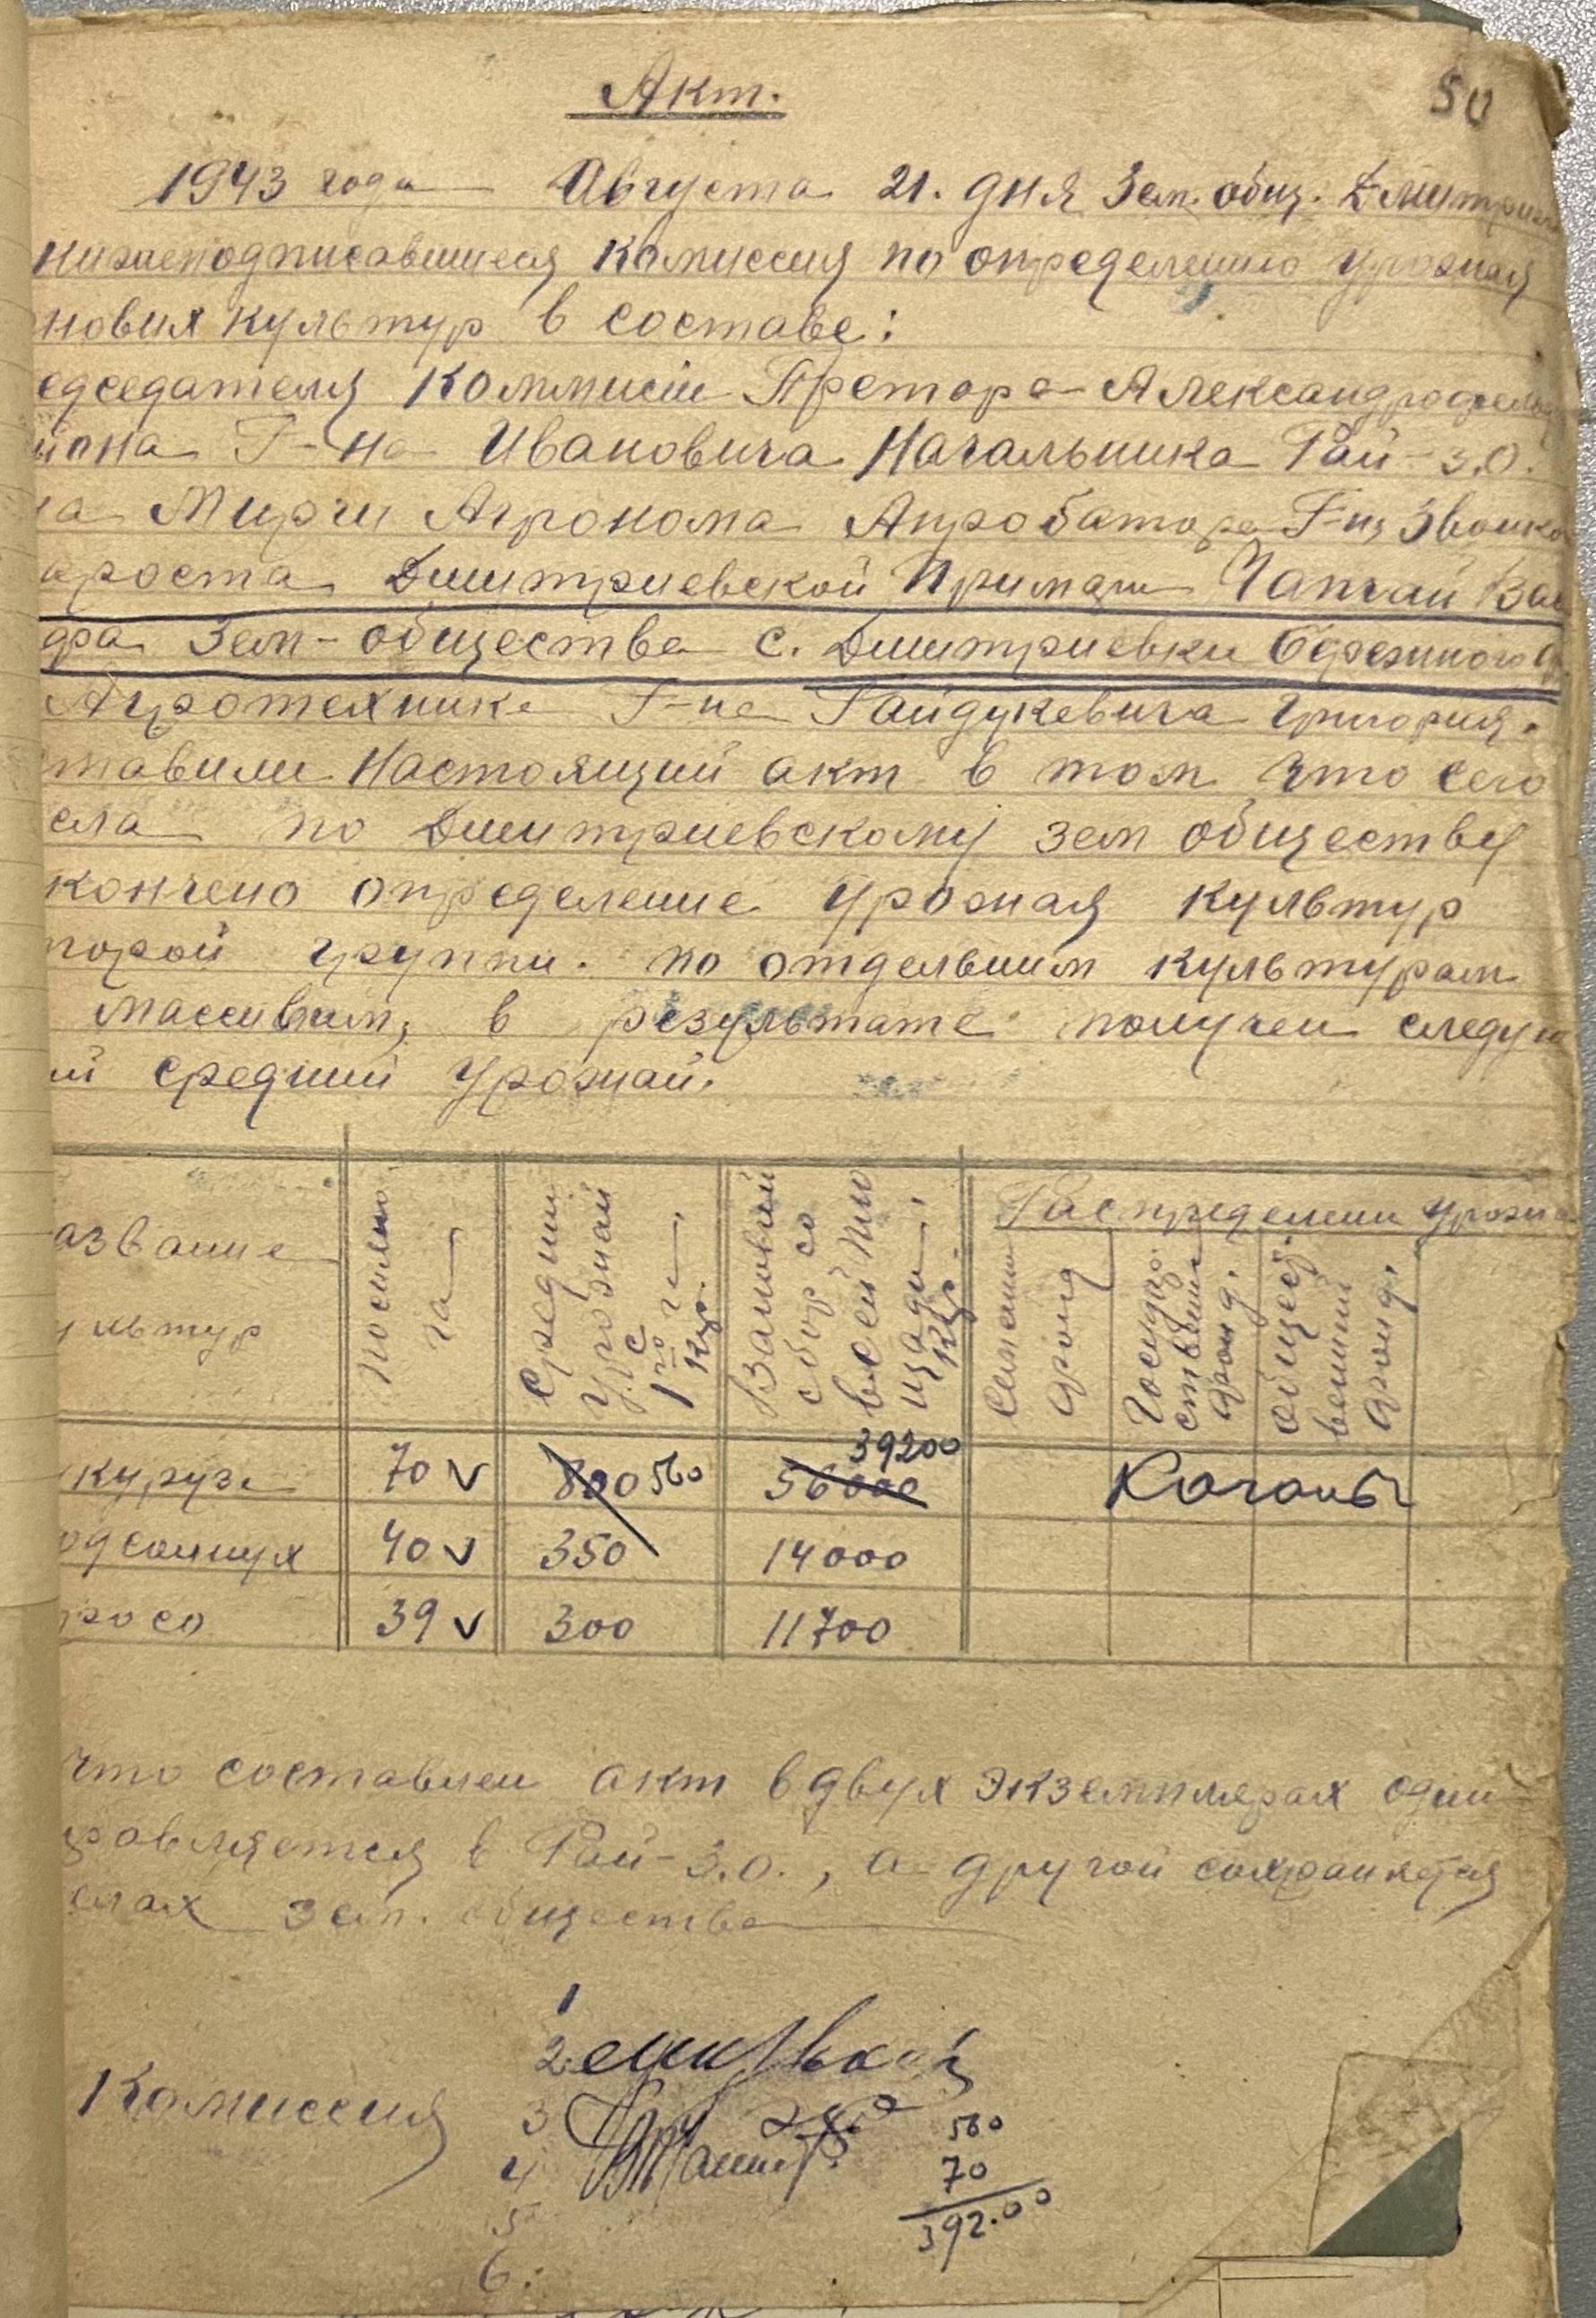 50
Акт.
1943 года Августа 21. дня Зем. общ.
нижеподписавшиеся Комиссия по определению урожая
новых культур в составе:
едседателя Коммисии Претора
йона Г-на Ивановича Начальника Рай-З.О.
на Мирчи Агронома Апробатора Г-на
ароста Дмитриевской Примэрии Чапчай
дра Зем-общества с. Дмитриевки
Агротехнике Г-на Гайдукевича Григория.
ставили Настоящий акт в том что сего
сла по Дмитриевскому зем обществу
кончено определение урожая культур
торой группи. по отдельним культурам
массивам, в результате получен следую
ий средний урожай.
азвание
ультур
Посеяно
га
Средний
урожай
с
1 го га.
кцр.
Валовий
сбор со
всей пло
щади.
Кцр.
Распределени урожа
Семенни
фонд
Государ.
ствени
фонд.
общест
вений
фонд.
укуруза 70 V 800 560 56000 39200
одсолнух 40 V 350 14000
росо 39 V 300 11700
Качаны
что составлен акт в двух экземплярах один
равляется в Рай-З.О., а другой сохраняется
елах зем. общества
1
2.
Комиссия
3
4
5
6.
560
70
392.00